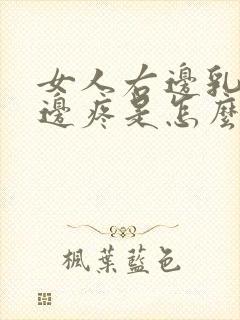 女人右邊乳
邊疼是怎麼
楓葉藍色